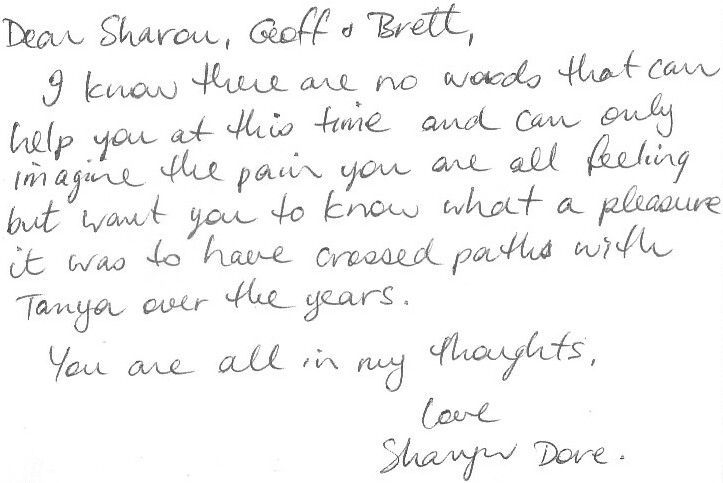 Dear Sharon, Geoff & Brett,
I know there are no words that can
help you at this time and can only
imagine the pain you are all feeling
but want you to know what a pleasure
it was to have crossed paths with
Tanya over the years.
You are all in my thoughts,
Love
Dore.